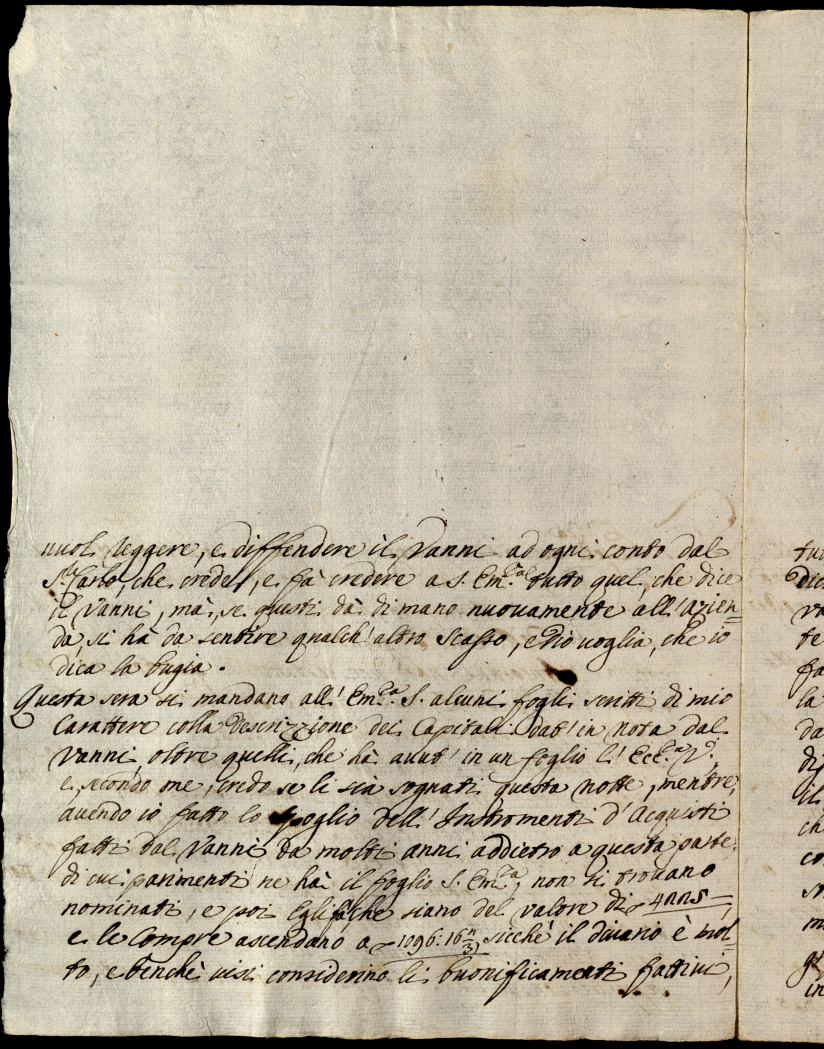 vuol reggere, e diffendere il Vanni ad ogni conto dal
S.r Carlo, che crede, e fà credere a S. Em.za tutto quel, che dice
il Vanni, mà, se questi dà di mano nuovamente all'azien=
da, si hà da sentire qualch'altro scasso, e Dio voglia, che io
dica la bugia.
Questa sera si mandano all'Em.za S. alcuni fogli scritti di mio
Carattere colla Descrizzione dei Capitali dat'in nota dal
Vanni, oltre quelli, che hà avut'in un foglio l'Ecc.za V.
e, secondo me, credo se li sia sognati questa notte, mentre,
avendo io fatto lo spoglio dell'Instromenti d'Acquisti
fatti dal Vanni da molti anni addietro a questa parte,
di cui parimenti ne hà il foglio S. Em.za, non si trovano
nominati, e poi Egli fà, che siano del valore di
e le Compre ascendano a 1096:16 sicchè il divario è mol=
to, e benchè visi considerino li buonificamenti fattivi,